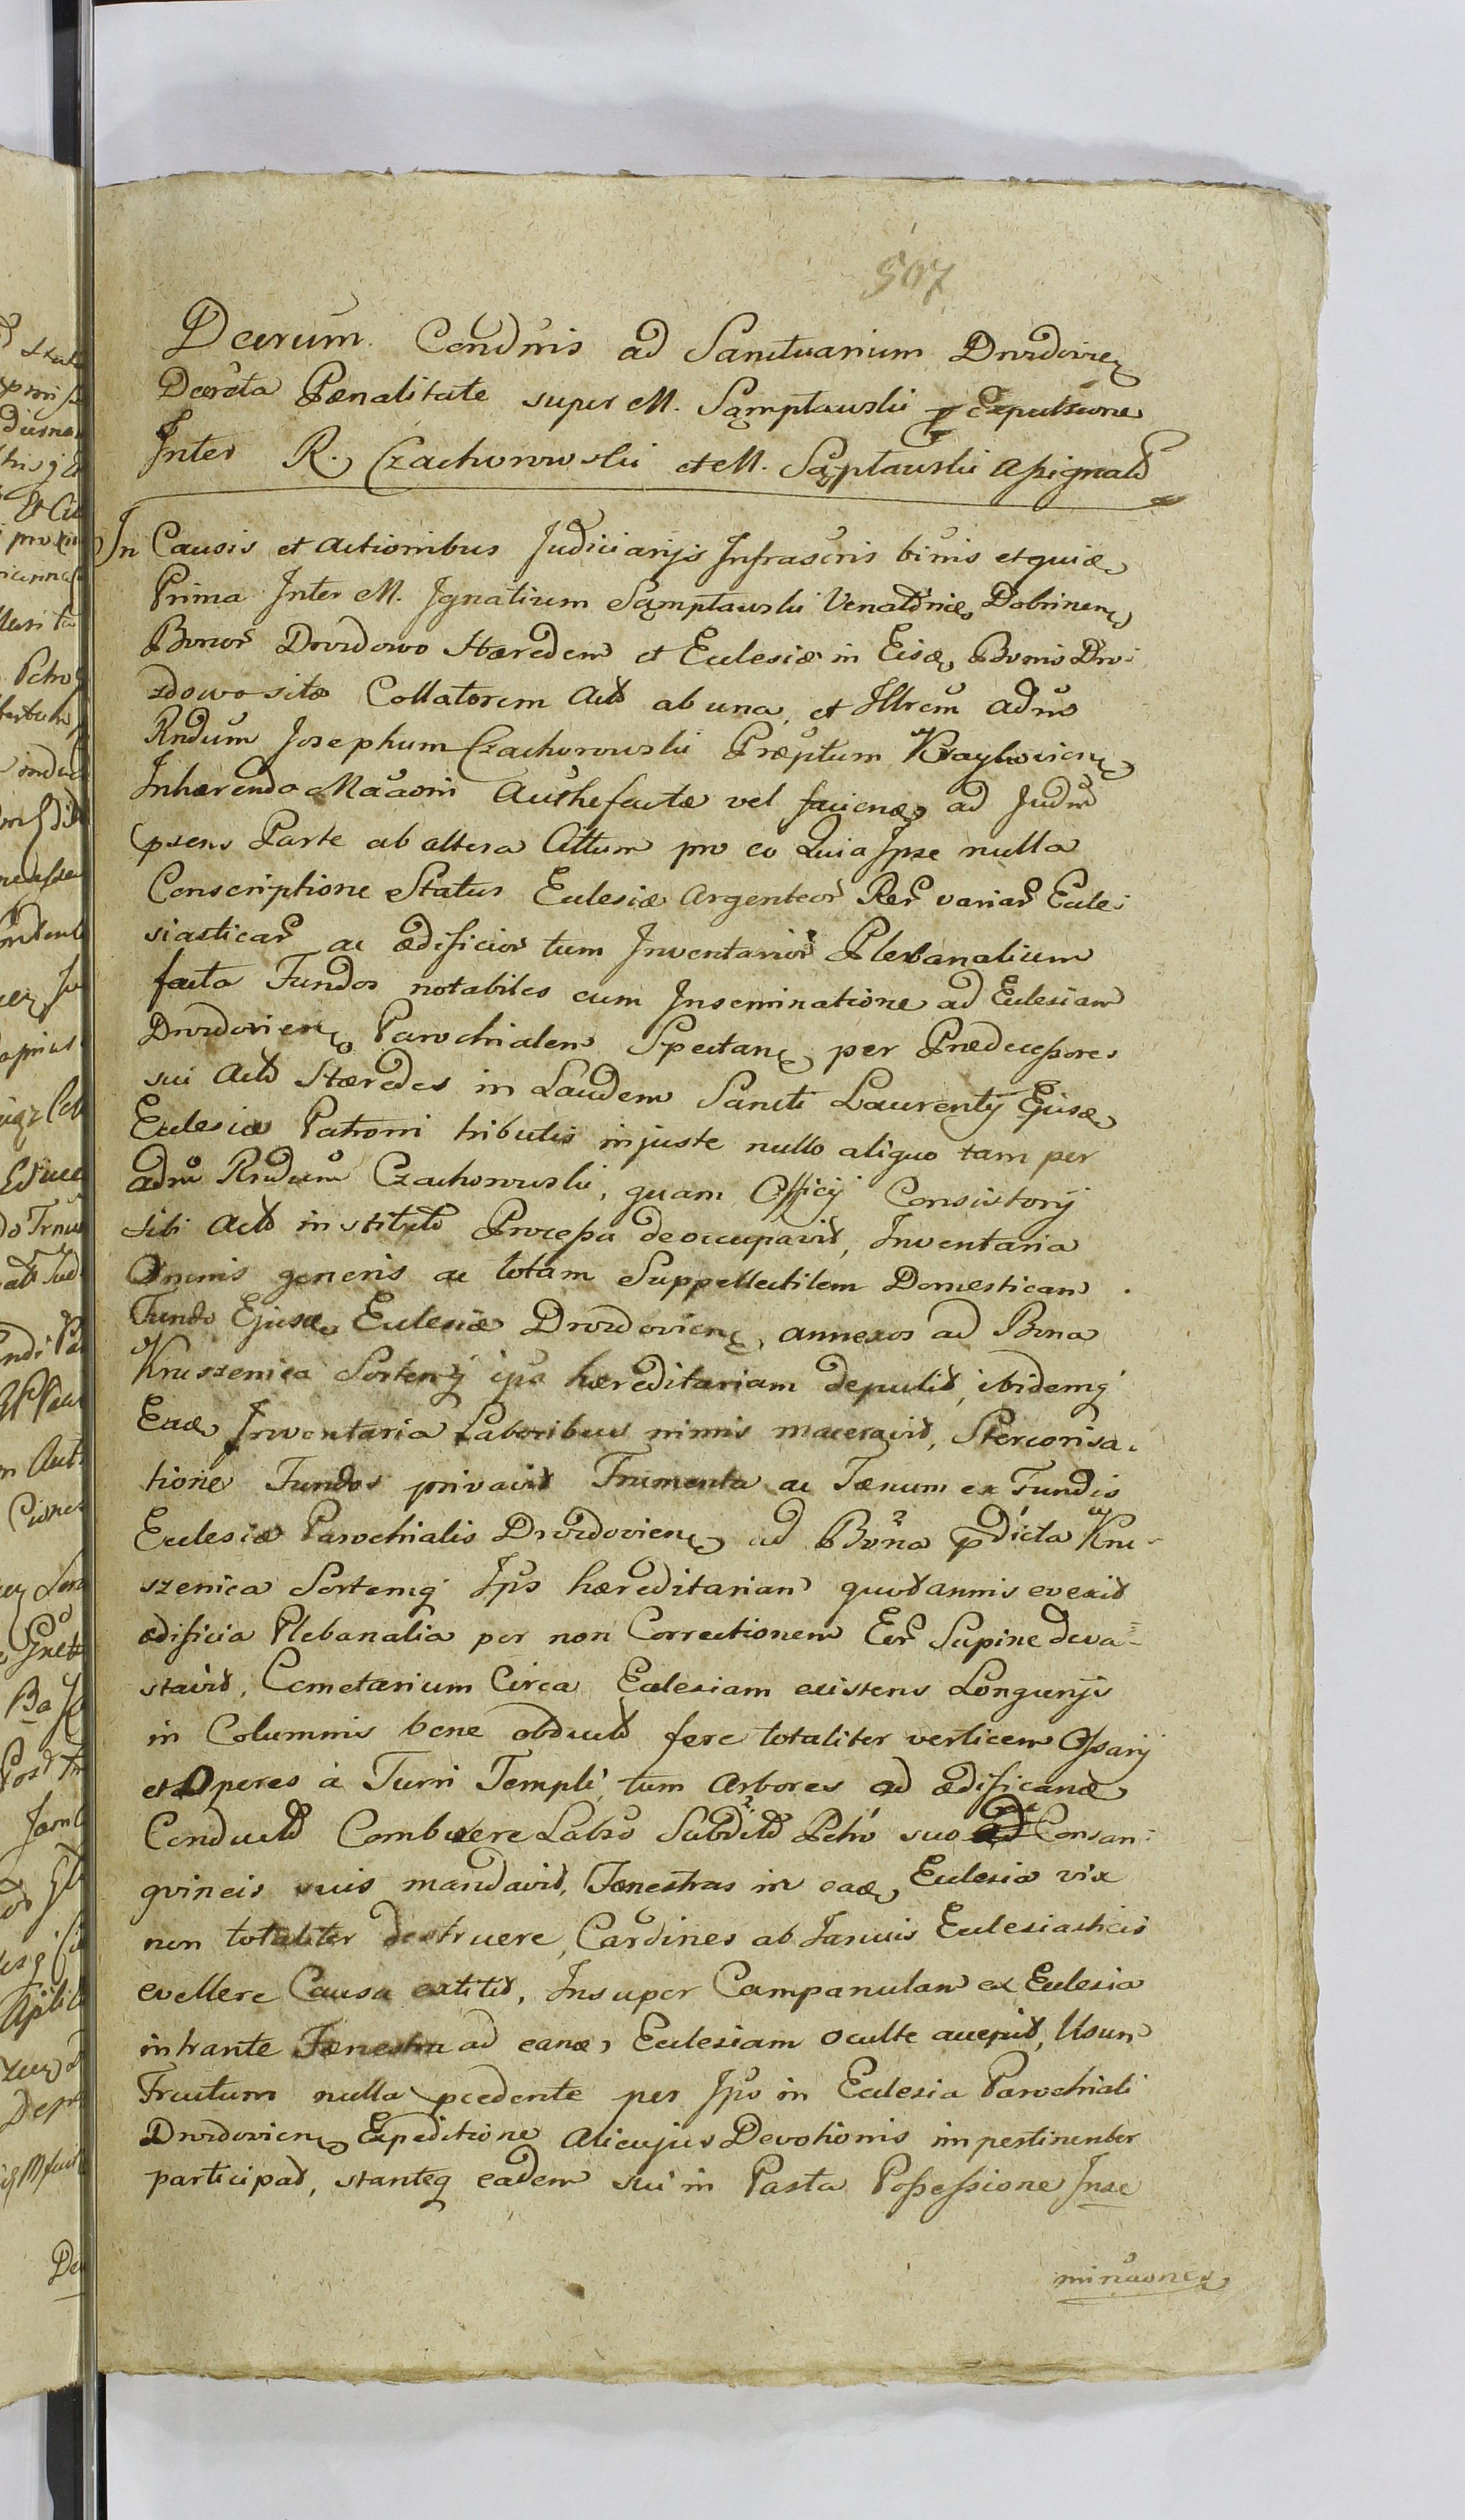 507
Decrum Condnis ad Sanctuarium Drozdovien
Decreta Pænalitate super M. Sąmpławski p Expulsione
Inter R. Czachorowski et M. Sąpławski Assignatt
In Causis et Actionibus Judiciarijs Infrascris binis et quidæ
Prima Inter M. Ignatium Sąmpławski Venatdniæ Dobrinen
Bonor Drozdowo Hæredem et Ecclesiæ in Eisd Bonis Dro-
zdowo sitæ Collatorem Actt ab una, et Illrem Adm
Rndum Josephum Czachorowski Præptum Kraykovien
Inhærendo Maaoni Aut he factæ vel faciend ad Judm
psens Parte ab altera Cittum pro eo Quia Ipse nulla
Conscriptione Status Ecclesiæ Argenteor Rer variar Eccle-
siasticar ac ædificior tum Inventarior Plebanalium
facta Fundos notabiles cum Inseminatione ad Ecclesiam
Drozdovien Parochialem Spectan per Prædecessores
sui Actt Hæredes in Laudem Sancti Laurentij Ejusd
Ecclesiæ Patroni tributis injuste nullo aliquo tam per
adm Rndum Czachorowski, quam Officij Consistorij
sibi Actt institutt Processu deoccupavit, Inventaria
Omnis generis ac totam Suppellectilem Domesticam
Fundo Ejusd Ecclesiæ Drozdovien, annexos ad Bona
Kruszenica Sortemq ips hæreditariam depulit, ibidemq
Ead Inventaria Laboribus nimis maceravit, Stercorisa-
tione Fundos privavit Frumenta ac Fænum ex Fundis
Ecclesiæ Parochialis Drozdovien ad Bona pdicta Kru-
szenica Sortemq Ips hæreditariam quotannis evexit
ædificia Plebanalia per non Correctionem Eor Supine deva-
stavit, Cemetarium Circa Ecclesiam existens Longurijs
in Columnis bene obductt fere totaliter verticem Ossarij
et Operes à Turri Templi, tum Arbores ad ædificand
Conductt Comburere Labso Subditt Petro suo ac Consan-
gvineis suis mandavit, Fænestras in ead Ecclesia vix
non totaliter destruere, Cardines ab Januis Ecclesiasticis
evellere Causa extitit, Insuper Campanulam ex Ecclesia
intrante Fænestra ad eand Ecclesiam oculte accepit, Usum
Fructum nulla pcedente per Ips in Ecclesia Parochiali
Drozdovien Expeditione Alicujus Devotionis impertinenter
participat, stanteq eadem sui in Pasta Possessione Inse
minaones